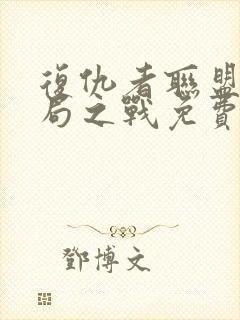 復仇者聯盟
局之戰免費
鄧博文